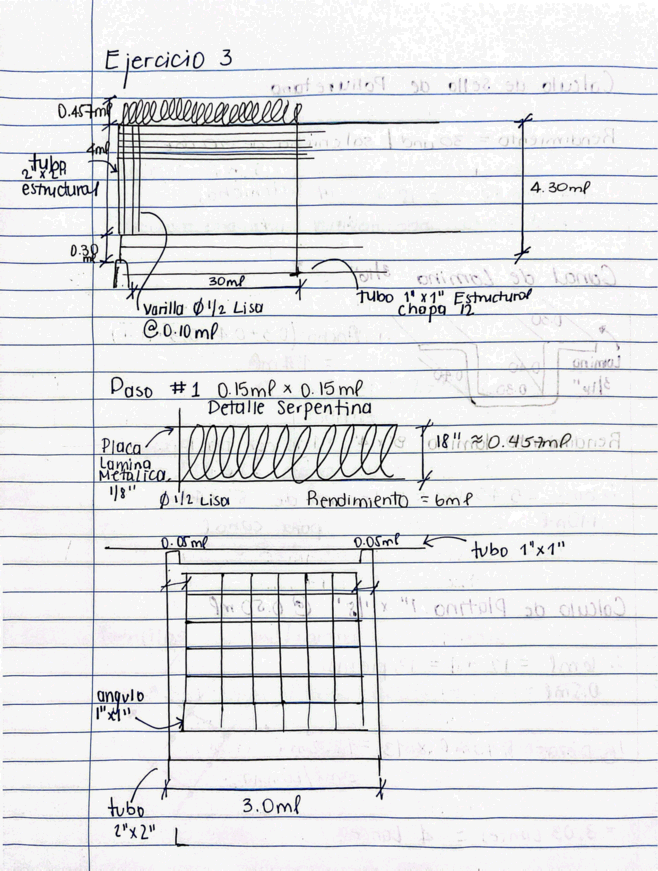 Ejercicio 3
0.457ml
4ml
tubo
2"x2"
estructural
4.30ml
0.30
ml
30ml
Varilla Ø 1/2 Lisa
@ 0.10 ml
tubo 1"x1" Estructural
chapa 12
Paso #1 0.15ml x 0.15ml
Detalle Serpentina
Placa
Lamina
Metálica
1/8"
18" ≈ 0.457ml
Ø 1/2 Lisa
Rendimiento = 6ml
0.05ml
0.05ml
tubo 1"x1"
angulo
1"x1"
3.0ml
tubo
2"x2"